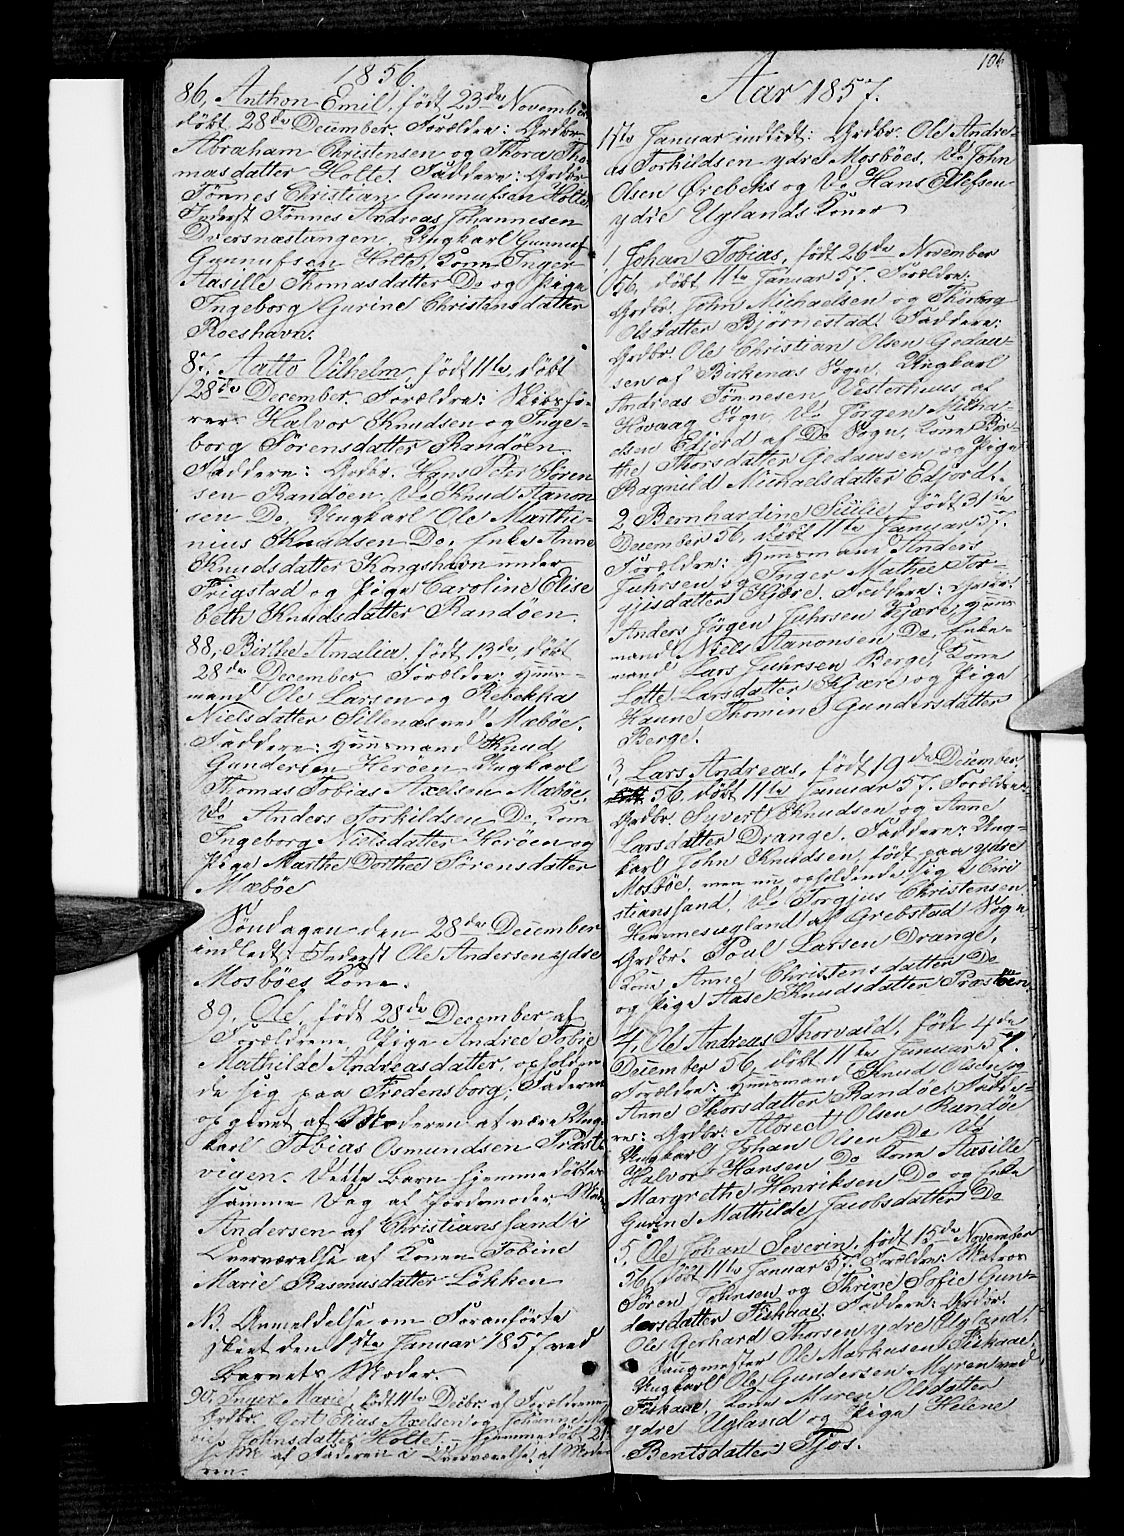 1856.
86, Anthon Emil, født 23de November
døbt 28de December. Forældre: Grdbr.
Abraham Christensen og Thora Tho-
masdatter Holte. Faddere: Grdbr.
Tønnes Christian Gunnufsen Holte
Inderst Tønnes Andreas Johannesen
Dversnæstangen, Ungkarl Gunnuf
Gunnufsen Holte, Kone Inger
Aasille Thomasdatter Do og Pige
Ingeborg Gurine Christensdatter
Roeshavn.
87, Aatto Vilhelm, født 11te, døbt
28de December. Forældre: Skibsfø-
rer Halvor Knudsen og Inge-
borg Sørensdatter Randøen.
Faddere: Grdbr. Hans Peter Søren
sen Randøen, Do Knud Aanon
sen Do, Ungkarl Ole Marthi-
nius Knudsen Do, Enke Anne
Knudsdatter Kongshavn under
Frigstad og Pige Caroline Elise
beth Knudsdatter Randøen.
88, Birthe Amalia, født 13de, døbt
28de December. Forældre: Huus-
mand Ole Larsen og Rebekka
Nielsdatter Sillenæs ved Mæbøe.
Faddere: Huusmand Knud
Gundersen Herøen, Ungkarl
Thomas Tobias Axelsen Mæbøe,
Do Anders Torkildsen Do, Kone
Ingeborg Nielsdatter Herøen og
Pige Marthe Dorthea Sørensdatter
Mæbøe
Søndagen den 28de December
indledt: Inderst Ole Andersen ydre
Mosbøes Kone.
89, Ole, født 28de December af
Forældrene Pige Andrea Tobie
Mathilde Andreasdatter, opholden
de sig paa Fredensborg, Faderen
opgivet af Moderen at være Ung
karl Tobias Osmundsen Træste
vigen. Dette Barn hjemmedøbt
samme Dag af Jordemoder
Andersen af Christianssand i
Overværelse af Konen Tobine
Marie Rasmusdatter Løkken
NB. Anmeldelse om Foranførte
skeet den 1ste Januar 1857 ved
Barnets Moder.
90, Inger Marie, født 11te Decbr. af Forældrene
Grdbr. Gert Elias Axelsen og Johanne
Johnsdatter Holte, Hjemmedøbt 21
af Faderen i Overværelse af Mode
ren.
106
Aar 1857.
1ste Januar indledt: Grdbr. Ole Andre-
as Torkildsen ydre Mosbøes, Do John
Olsen Ørebeks og Do Hans Ellefsen
ydre Uglands Koner
1, Johan Tobias, født 26de November
56, døbt 11te Januar 57. Forældre:
Grdbr. John Michaelsen og Thorborg
Olsdatter Bjørnestad. Faddere:
Grdbr. Ole Christian Olsen Gedaa-
sen af Birkenæs Sogn, Ungkarl
Andreas Tønnesen Vesterhuus af
Høvaag Sogn, Do Jørgen Micha-
elsen Edjord af Do Sogn, Kone
the Thorsdatter Gedaasen og Pige
Ragnild Michaelsdatter Edjord.
2 Bernhardine Julie født 31te
December 56, døbt 11te Januar 57.
Forældre: Huusmand Anders
Juhrsen og Inger Mathea Tor-
gjisdatter Kjære. Faddere: Grdbr.
Anders Jørgen Juhrsen Kjære, Huus
mand Niels Aanonsen Do, Enke-
mand Lars Juhrsen Berge, Kone
Lotte Larsdatter Kjære og Pige
Hanne Thomine Gundersdatter
Berge.
3, Lars Andreas, født 19de December
56, døbt 11te Januar 57. Forældre:
Grdbr. Syvert Knudsen og Anne
Larsdatter Drange. Faddere: Ung-
karl John Knudsen, født paa ydre
Mosbøe, men nu opholdende sig i Chri
stianssand, Do Torgjus Christensen
Hemmesugland af Grebstad Sogn
Grdbr. Poul Larsen Drange,
Kone Anne Christensdatter Do
og Pige Aase Knudsdatter
4, Ole Andreas Thorvald, født 4de
December 56, døbt 11te Januar 57.
Forældre: Huusmand Knud Olsen og
Anne Thorsdatter Randøe, Fadde-
re: Grdbr. Albrect Olsen Randøe
Ungkarl Johan Olsen Do, Do
Halvor Hansen Do Kone Aasille
Margrethe Henriksen Do og Enke
Gurine Mathilde Jacobsdatter Do
5, Ole Johan Severin, født 15de November
56, døbt 11te Januar 57. Forældre: Matros
Søren Johnsen og Thrine Sofie Gun-
dersdatter Fiskaae. Faddere: Grdbr.
Ole Gerhard Thorsen ydre Ugland,
Saugmester Ole Markussen Fiskaae,
Ungkarl Ole Gundersen Myren ved
Fiskaae, Kone Maren Olsdatter
ydre Ugland og Pige Helene
Bentsdatter Tjos.